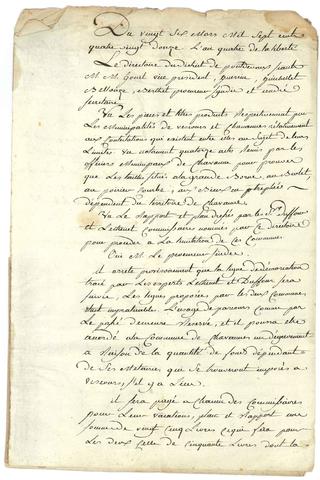 Du vingt six Mars Mil Sept cent
quatre vingt douze L'an quatre de la liberté
Le directoire du district de pontdevaux seant
M M. Goret vice president, Guerin, Guichellet
Berthet procureur sindic et
Secretaire
Vu Les pieces et titres produits Respectivement par
Les Municipalités de vesours et Chavannes relativement
aux contestations qui existent entre elles au sujet de leurs
Limites Vu notament quatorze actes Remis par les
officiers Municipaux de Chavanne pour prouver
que Les tailles situé a la grande
au poirier au
dependent du territoire de Chavanne
Vu Le Rapport et plan dressés par les Srs Duffour
et Lethenet Commissaires nommés par ce directoire
pour proceder a La limitation de Ces Communes
Oui M. Le procureur sindic
il arrete provisoirement que la ligne de demarcation
tracé par Les experts Lethenet et Duffour sera
Suivie, Les lignes proposées par les deux Communes
étant impraticables L'usage de parcours Comme par
Le passé demeure Reservé, et il pourra etre
accordé a la Commune de Chavannes un degrevement
a Raison de la quantité de fonds dependant
de Ses Metairies qui se trouveront imposés a
vesours, s'il y a Lieu
il Sera payé a Chacun des Commissaires
pour Leur vacations, plan et Rapport une
somme de vingt cinq Livres ce qui fera pour
Les deux celle de cinquante Livres dont la